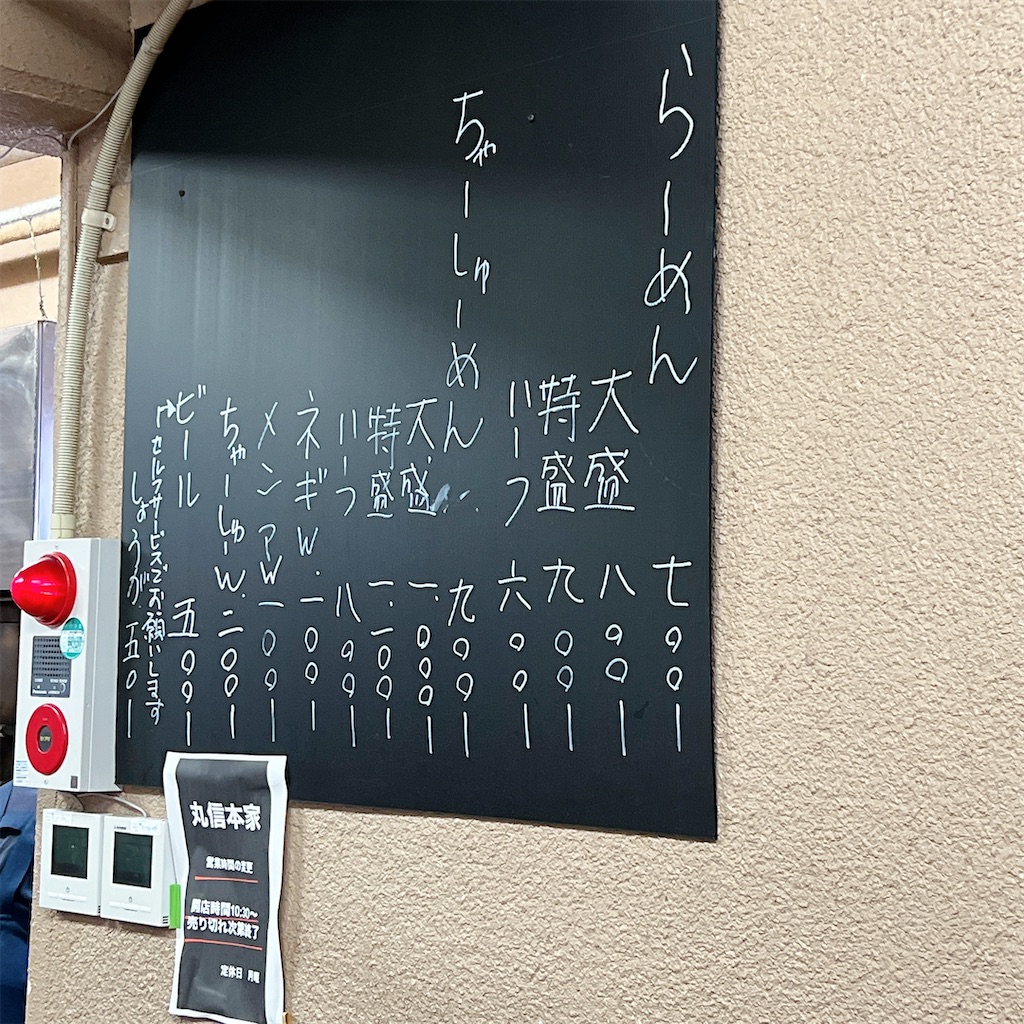 らーめん 七〇〇ー
大盛 八〇〇ー
特盛 九〇〇ー
ハーフ 六〇〇ー
ちゃーしゅーめん 九〇〇ー
大盛 一、〇〇〇ー
特盛 一、一〇〇ー
ハーフ 八〇〇ー
ネギW. 一〇〇ー
メンマW 一〇〇ー
ちゃーしゅーW. 二〇〇ー
ビール 五〇〇ー
セルフサービスでお願いします
しょうが 五〇ー
丸信本家
営業時間の変更
開店時間10:30〜
売り切れ次第終了
定休日 月曜